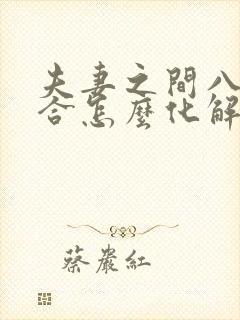 夫妻之間八
合怎麼化解
蔡巖紅